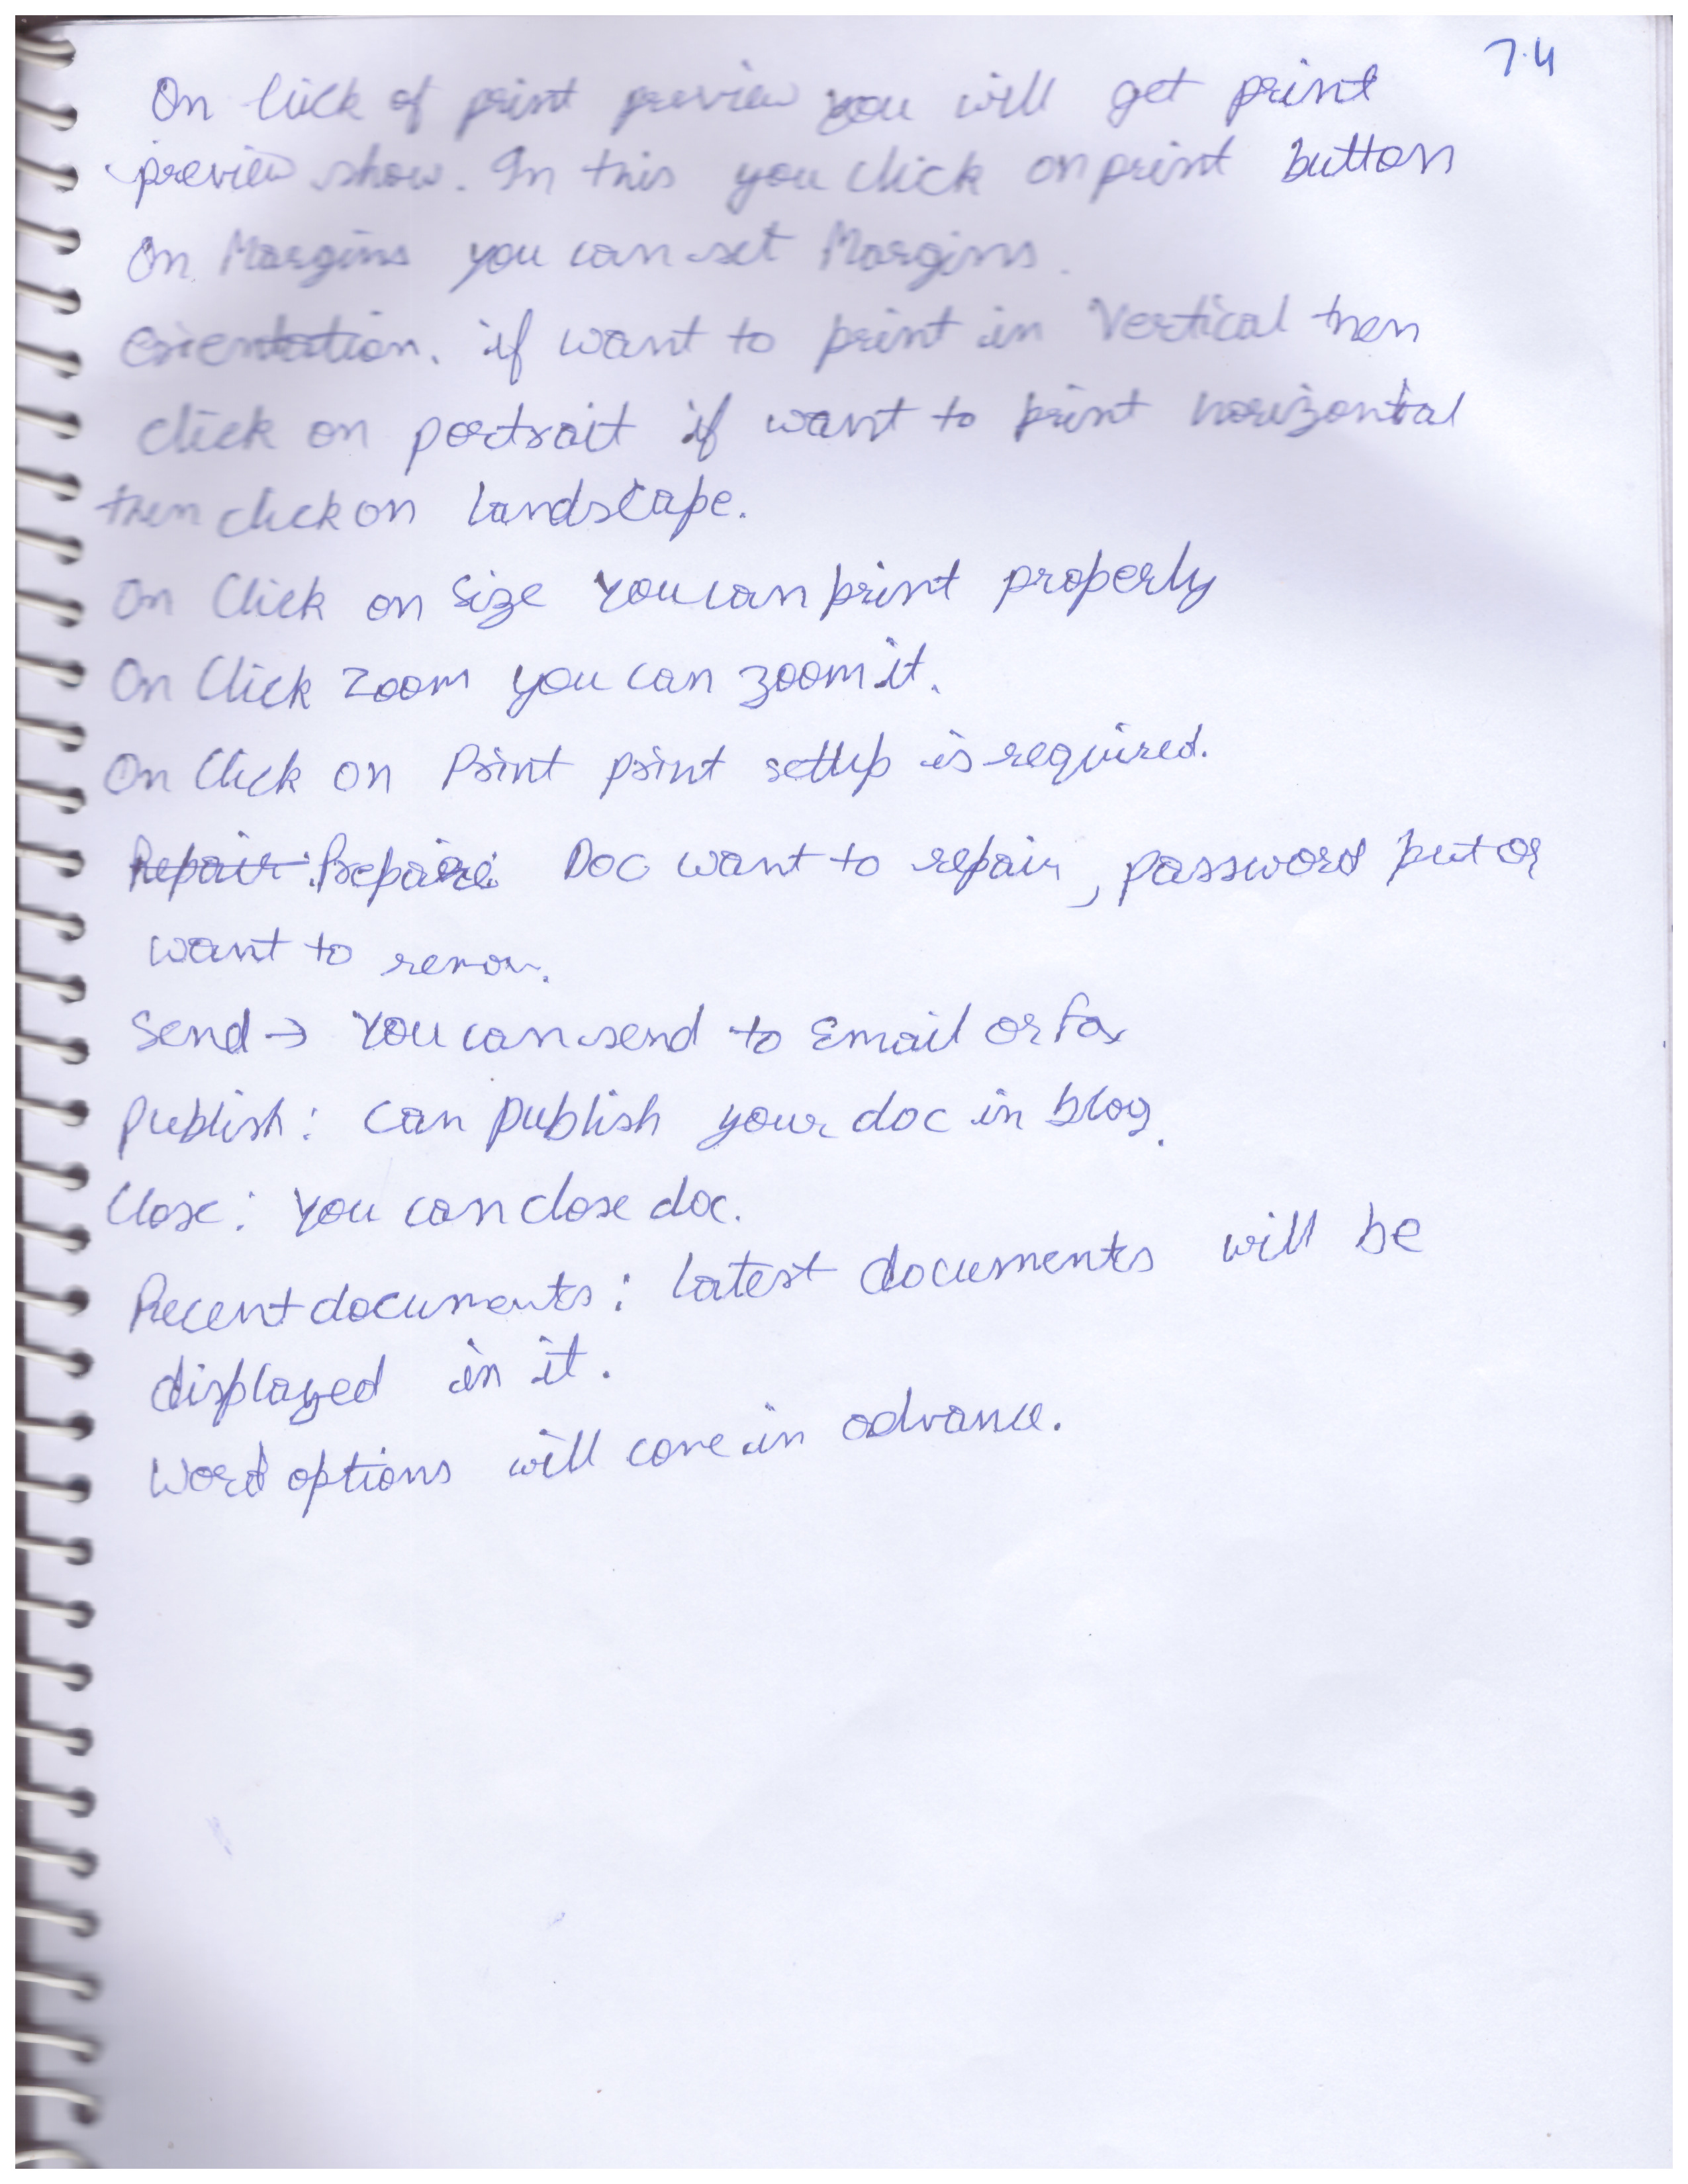 7.4
On click of print preview you will get print
preview show. In this you click on print button
On Margins you can set Margins.
Orientation. if want to print in Vertical then
click on portrait if want to print horizontal
then click on landscape.
On Click on Size You can print properly
On Click Zoom you can zoom it.
On Click on Print print settup is required.
Repair: Prepare: Doc want to repair, password put or
want to remov.
Send → You can send to Email or Fax
Publish: Can Publish your doc in blog.
Close: You can close doc.
Recent documents: latest documents will be
displayed in it.
Word options will come in advance.